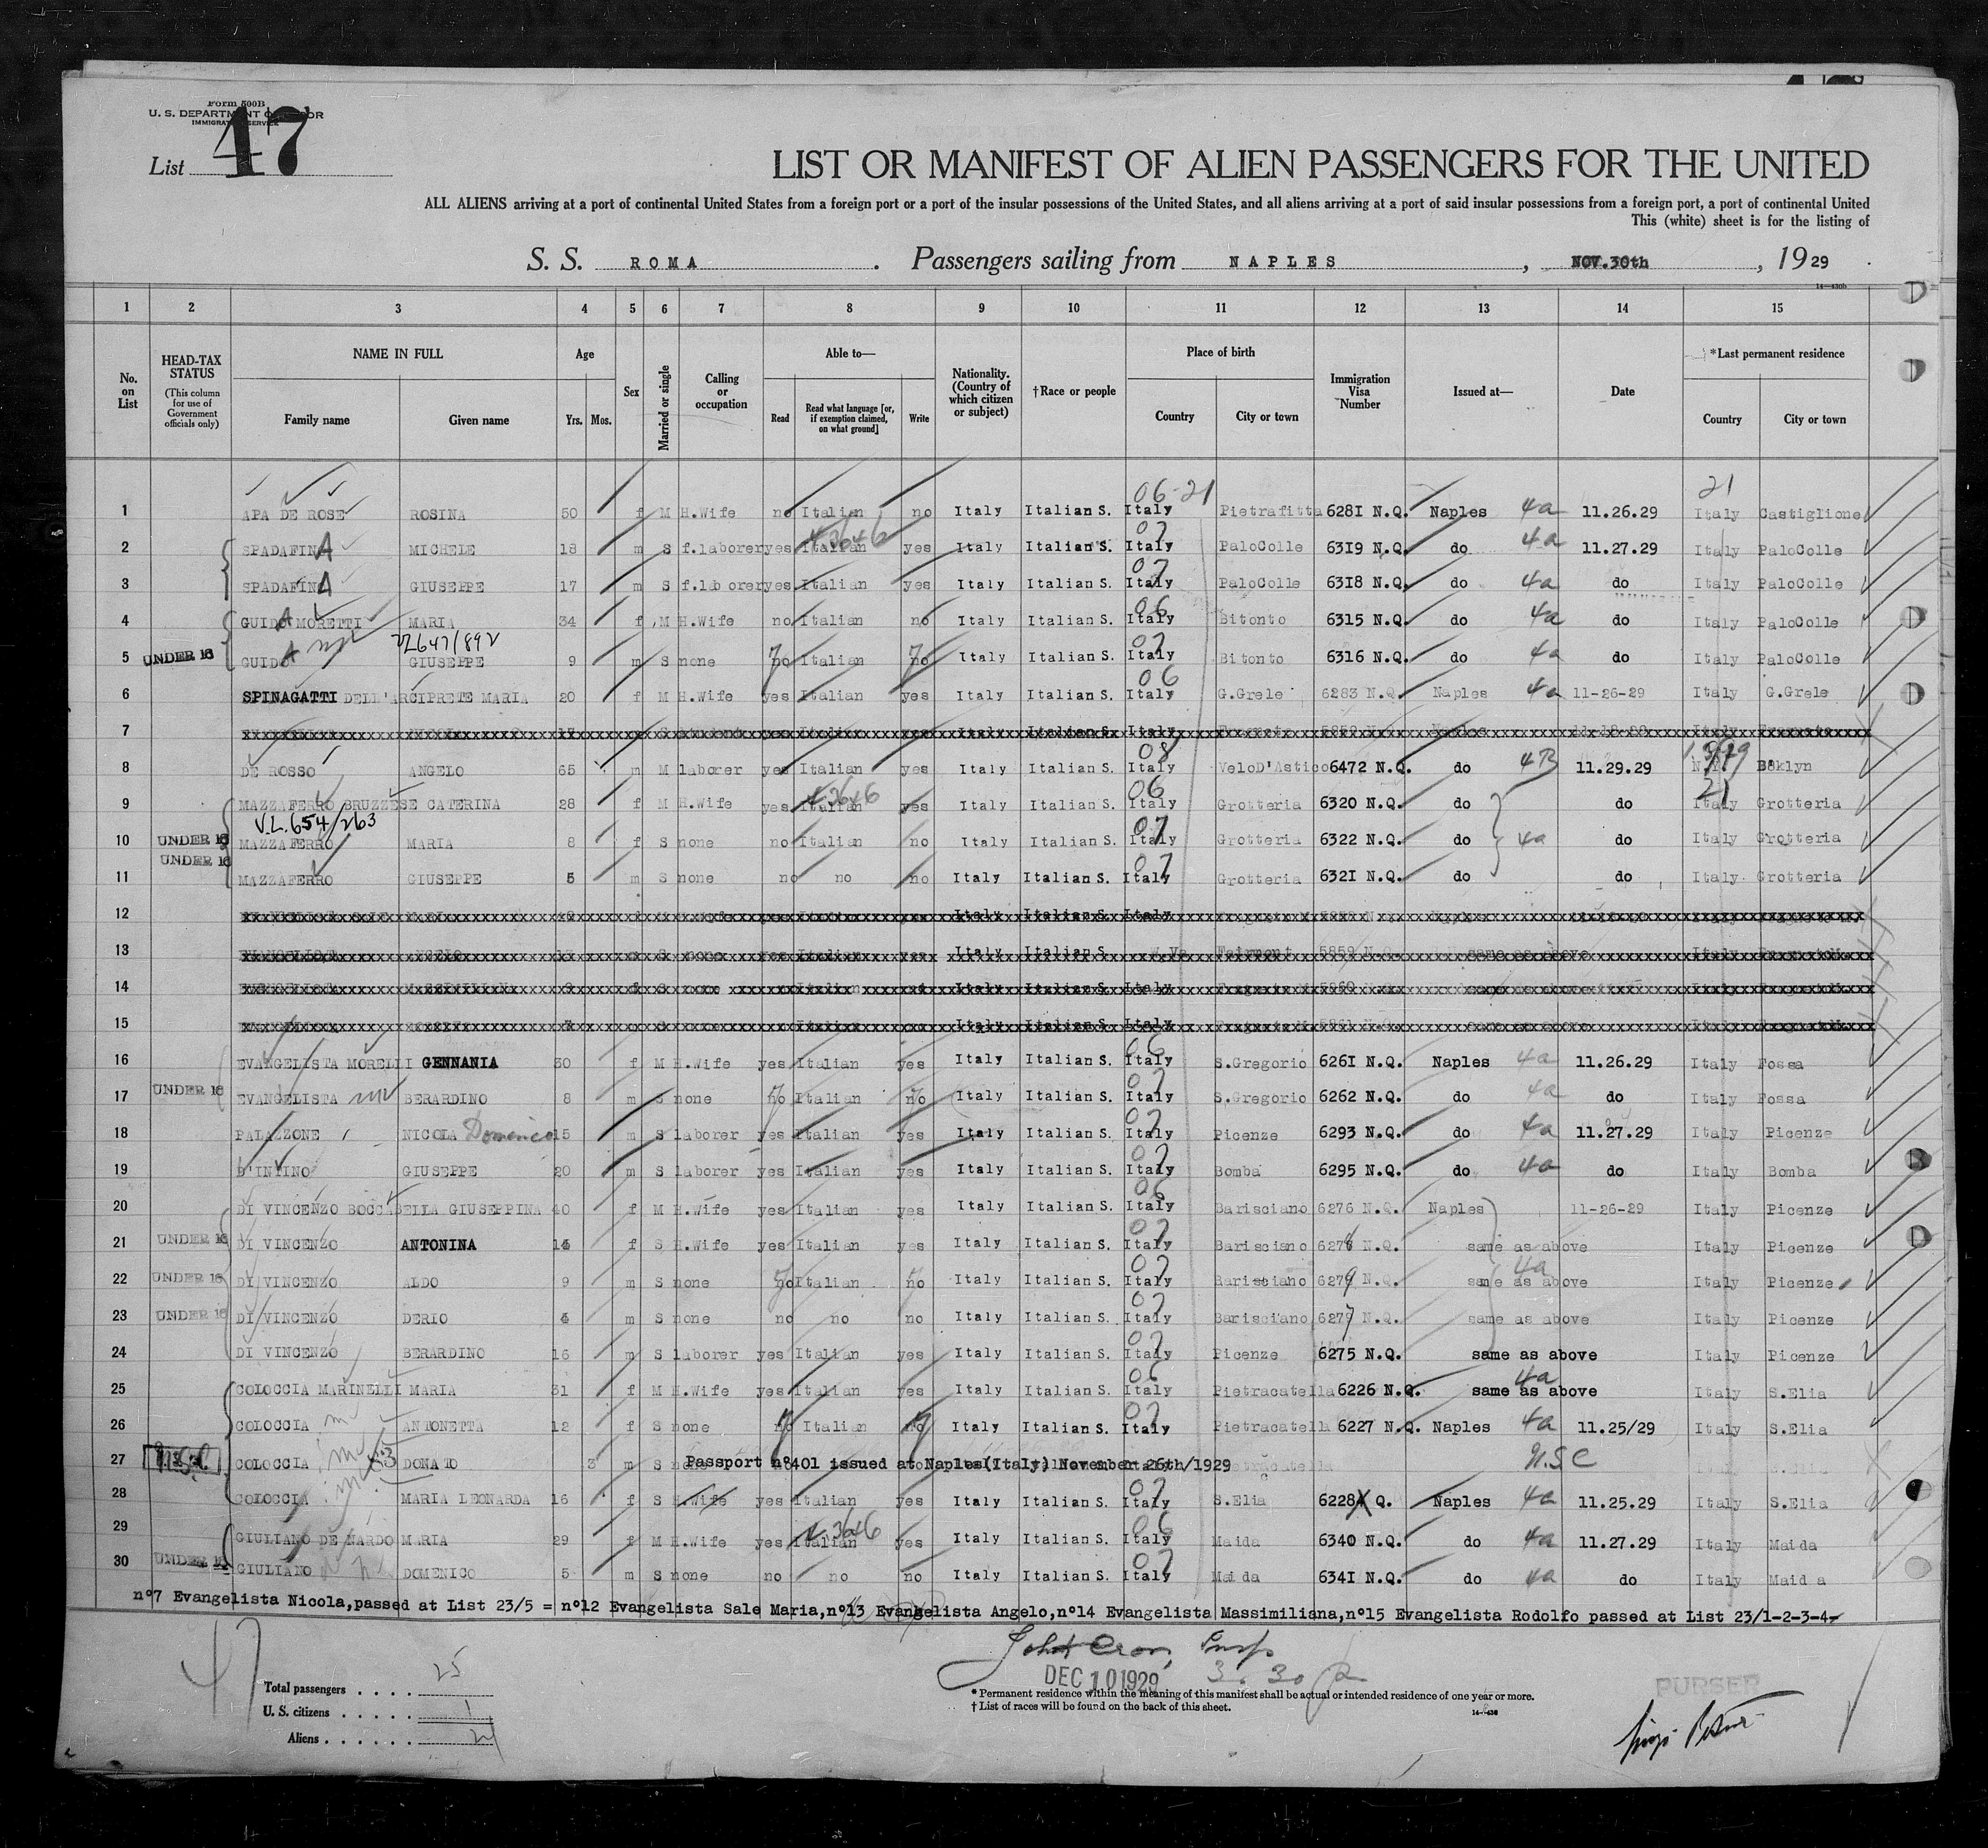 Form 500B
U. S. DEPARTMENT OF LABOR
IMMIGRATION SERVICE
List 47
LIST OR MANIFEST OF ALIEN PASSENGERS FOR THE UNITED
ALL ALIENS arriving at a port of continental United States from a foreign port or a port of the insular possessions of the United States, and all aliens arriving at a port of said insular possessions from a foreign port, a port of continental United
This (white) sheet is for the listing of
S. S. ROMA. Passengers sailing from NAPLES, NOV.30th, 1929
1 2 3 4 5 6 7 8 9 10 11 12 13 14 15
No. on List
HEAD-TAX STATUS (This column for use of Government officials only)
NAME IN FULL Family name Given name
Age Yrs. Mos.
Sex
Married or single
Calling or occupation
Able to— Read Read what language [or, if exemption claimed, on what ground] Write
Nationality. (Country of which citizen or subject)
†Race or people
Place of birth Country City or town
Immigration Visa Number
Issued at—
Date
*Last permanent residence Country City or town
06-21 21
1 APA DE ROSE ROSINA 50 f M H.Wife no Italian no Italy Italian S. Italy Pietrafitta 6281 N.Q. Naples 4a 11.26.29 Italy Castiglione
2 SPADAFINA MICHELE 18 m S f.laborer yes Italian yes Italy Italian S. 07 Italy PaloColle 6319 N.Q. do 4a 11.27.29 Italy PaloColle
3 SPADAFINA GIUSEPPE 17 m S f.laborer yes Italian yes Italy Italian S. 07 Italy PaloColle 6318 N.Q. do 4a do Italy PaloColle
4 GUIDA MORETTI MARIA 34 f M H.Wife no Italian no Italy Italian S. 06 Italy Bitonto 6315 N.Q. do 4a do Italy PaloColle
22647/892
5 UNDER 16 GUIDA GIUSEPPE 9 m S none no Italian no Italy Italian S. 07 Italy Bitonto 6316 N.Q. do 4a do Italy PaloColle
6 SPINAGATTI DELL'ARCIPRETE MARIA 20 f M H.Wife yes Italian yes Italy Italian S. 06 Italy G.Grele 6283 N.Q. Naples 4a 11-26-29 Italy G.Grele
7 Italy Italian S. Italy
8 DE ROSSO ANGELO 65 m M laborer yes Italian yes Italy Italian S. 08 Italy VeloD'Astico 6472 N.Q. do 4B 11.29.29 N.Y. Boklyn
9 MAZZAFERRO BRUZZESE CATERINA 28 f M H.Wife yes Italian yes Italy Italian S. 06 Italy Grotteria 6320 N.Q. do do 21 Italy Grotteria
V.L.654/263
10 UNDER 16 MAZZAFERRO MARIA 8 f S none no Italian no Italy Italian S. 07 Italy Grotteria 6322 N.Q. do 4a do Italy Grotteria
11 UNDER 16 MAZZAFERRO GIUSEPPE 5 m S none no no no Italy Italian S. 07 Italy Grotteria 6321 N.Q. do do Italy Grotteria
12 Italy Italian S. Italy
13 S none Italy Italian S. Fairmont 5859 N.Q. same as above Italy
14 Italy Italian S. Italy
15 Italy Italian S. Italy
16 EVANGELISTA MORELLI GENNANIA 30 f M H.Wife yes Italian yes Italy Italian S. 06 Italy S.Gregorio 6261 N.Q. Naples 4a 11.26.29 Italy Fossa
17 UNDER 16 EVANGELISTA BERARDINO 8 m S none no Italian no Italy Italian S. 07 Italy S.Gregorio 6262 N.Q. do 4a do Italy Fossa
18 PALAZZONE NICOLA Domenico 15 m S laborer yes Italian yes Italy Italian S. 07 Italy Picenze 6293 N.Q. do 4a 11.27.29 Italy Picenze
19 D'INTINO GIUSEPPE 20 m S laborer yes Italian yes Italy Italian S. 07 Italy Bomba 6295 N.Q. do 4a do Italy Bomba
20 DI VINCENZO BOCCABELLA GIUSEPPINA 40 f M H.Wife yes Italian yes Italy Italian S. 06 Italy Barisciano 6276 N.Q. Naples 11-26-29 Italy Picenze
21 UNDER 16 DI VINCENZO ANTONINA 14 f S H.Wife yes Italian yes Italy Italian S. 07 Italy Barisciano 6278 N.Q. same as above Italy Picenze
22 UNDER 16 DI VINCENZO ALDO 9 m S none no Italian no Italy Italian S. 07 Italy Barisciano 6279 N.Q. 4a same as above Italy Picenze
23 UNDER 16 DI VINCENZO DERIO 4 m S none no no no Italy Italian S. 07 Italy Barisciano 6277 N.Q. same as above Italy Picenze
24 DI VINCENZO BERARDINO 16 m S laborer yes Italian yes Italy Italian S. 07 Italy Picenze 6275 N.Q. same as above Italy Picenze
25 COLOCCIA MARINELLI MARIA 31 f M H.Wife yes Italian yes Italy Italian S. 06 Italy Pietracatella 6226 N.Q. 4a same as above Italy S.Elia
26 COLOCCIA ANTONETTA 12 f S none no Italian no Italy Italian S. 07 Italy Pietracatella 6227 N.Q. Naples 4a 11.25/29 Italy S.Elia
27 COLOCCIA DONATO 3 m S none Passport n°401 issued at Naples(Italy) November 26th/1929 U.S.C
28 COLOCCIA MARIA LEONARDA 16 f S H.Wife yes Italian yes Italy Italian S. 07 Italy S.Elia 6228 Q. Naples 4a 11.25.29 Italy S.Elia
29 GIULIANO DE NARDO MARIA 29 f M H.Wife yes Italian yes Italy Italian S. 06 Italy Maida 6340 N.Q. do 4a 11.27.29 Italy Maida
30 UNDER 16 GIULIANO DOMENICO 5 m S none no no no Italy Italian S. 07 Italy Maida 6341 N.Q. do 4a do Italy Maida
n°7 Evangelista Nicola,passed at List 23/5 = n°12 Evangelista Sale Maria,n°13 Evangelista Angelo,n°14 Evangelista Massimiliana,n°15 Evangelista Rodolfo passed at List 23/1-2-3-4-
47
DEC 10 1929
Total passengers . . . . 25
U. S. citizens . . . . . 1
Aliens . . . . . . 24
* Permanent residence within the meaning of this manifest shall be actual or intended residence of one year or more.
† List of races will be found on the back of this sheet.
PURSER